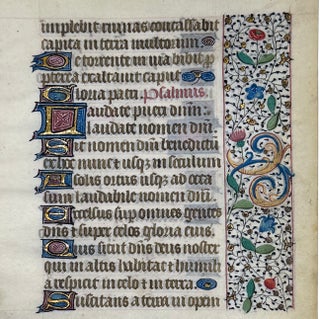 implebit ruinas conquassabit
capita in terra multorum
De torrente in via bibet p
pterea exaltavit caput
Gloria patri. Psalmus.
Laudate pueri dnm.
laudate nomen dni.
Sit nomen domini benedictu
ex hoc nunc et usqz in seculum
A solis ortus usqz ad occa
sum laudabile nomen dni.
Excelsus sup omnes gentes
dns et super celos gloria eius.
Quis sicut dns deus noster
qui in altis habitat et humilia
a respicit in celo et in terra.
Suscitans a terra in opem